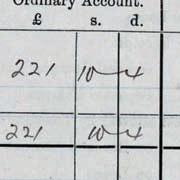 Ordinary Account.
£ s. d.
221 10 4
221 10 4